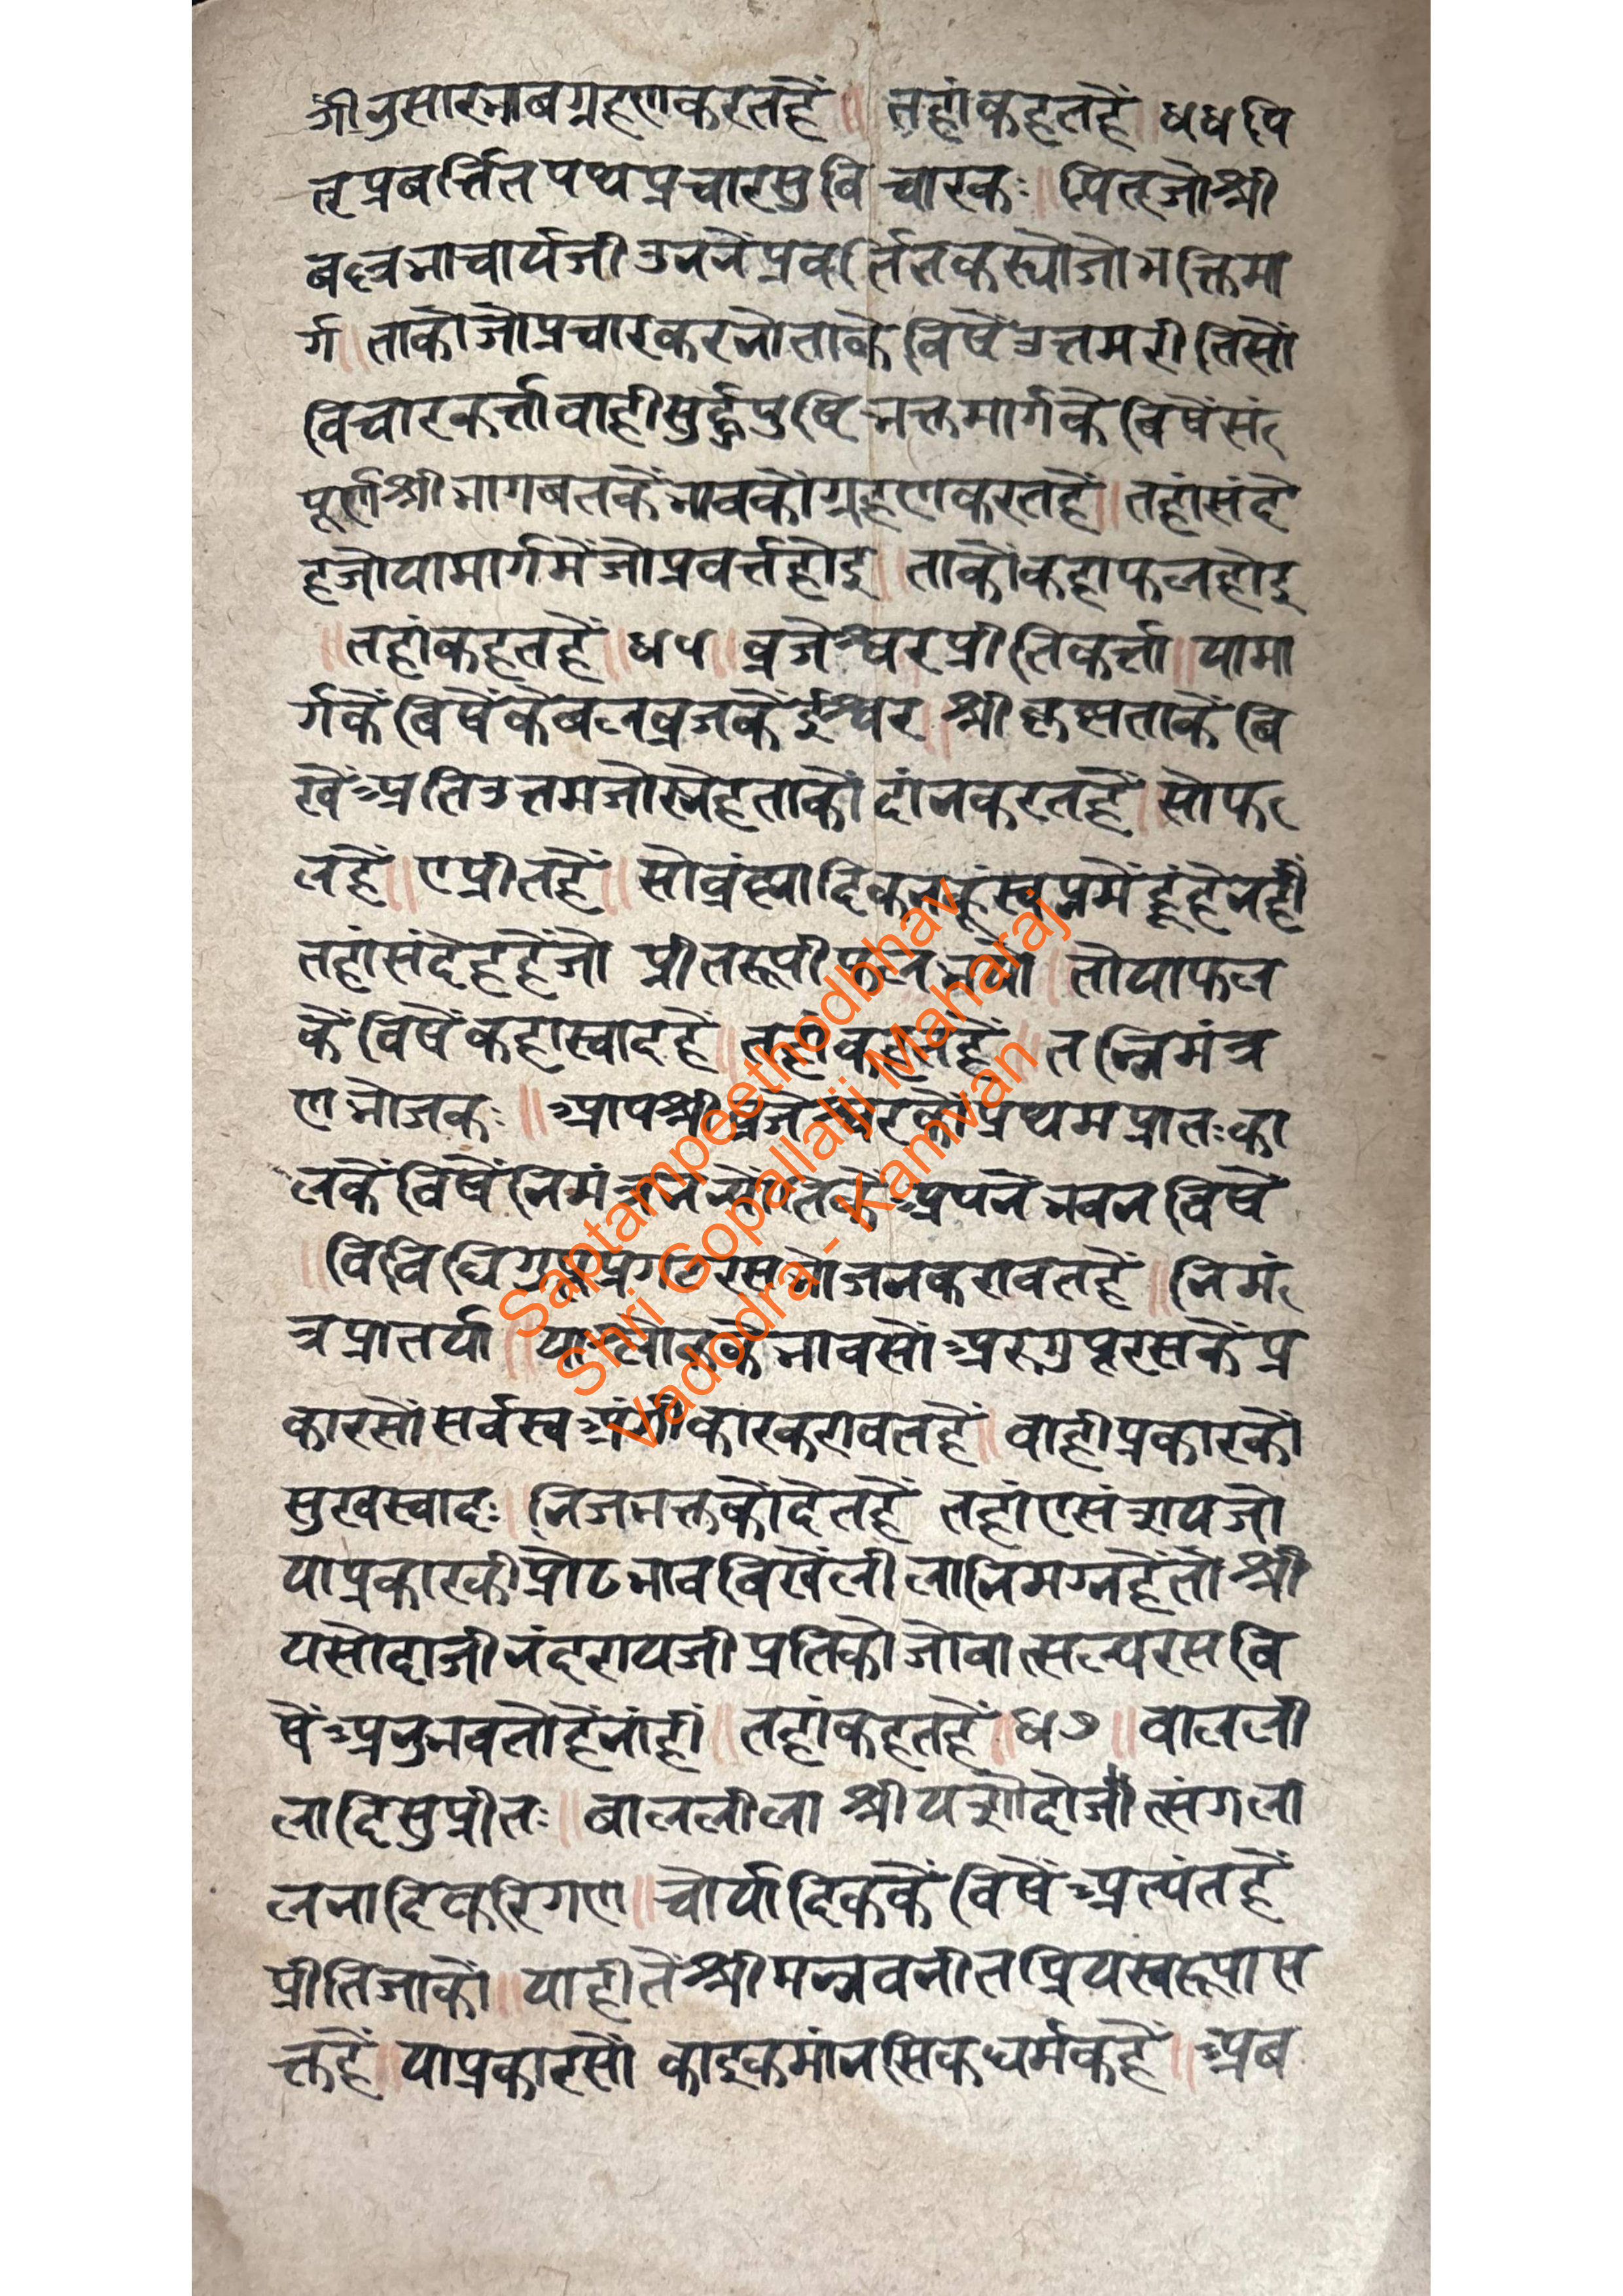 गीनुसारभाबग्रहणकरतहैं ॥ तहांकहतहैं ॥ ४४ पि
तृप्रबर्त्तितपथप्रचारसुबिचारकः ॥ पितृजोश्री
बल्लभाचार्यजीउननेंप्रवर्तितकस्योजोभक्तिमा
र्ग ॥ ताकोजोप्रचारकरनोताके विषेंउत्तमरीतिसों
विचारकर्त्तावाहीसुद्धपुष्टिभक्तमार्गके बिषेंसं
पूर्णश्रीभागबतकेंभावकोंग्रहणकरतहें ॥ तहांसंदे
हजोयामार्गमेंजोप्रवर्त्तहोइ ॥ ताकोंकहाफलहोइ
॥ तहांकहतहैं ॥ ४५ ॥ व्रजेश्वरप्रीतिकर्त्ता ॥ यामा
र्गकें बिषेंकेबलव्रजकेंईश्वर ॥ श्रीकृष्णताकें बि
खेंअतिउत्तमजोस्नेहताकों दांनकरतहैं ॥ सोफ
लहैं ॥ एप्रीतहैं ॥ सोव्रंह्मादिकनकूंस्वप्नमेंहूंहेनहीं
तहांसंदेहहेंजो प्रीतरूपीफलभयो ॥ तोयाफल
कें विषेंकहास्वादहें ॥ तहांकहतहैं ॥ तन्निमंत्र
णभोजकः ॥ आपश्रीव्रजेश्वरकोंप्रथमप्रातःका
लकेंविषेंनिमंत्रनन्योंतिकेंअपनेंभवन विषें
॥ विविधिगुप्तप्रगटरसभोजनकरावतहें ॥ निमं
त्रप्रातर्या ॥ याश्लोककेभावसोंअरुगुप्तरसकेंप्र
कारसोंसर्वस्वअंगीकारकरावतहें ॥ वाहीप्रकारकों
सुखस्वादः ॥ निजभक्तकोंदेतहें तहांएसंशयजो
याप्रकारकीप्रोढभावबिखेंलीलानिमग्नहेंतोश्री
यसोदाजीनंदरायजीप्रतिकोजोवात्सल्यरस बि
षेंअनुभवतोहेंनांहीं ॥ तहांकहतहें ॥ ४७ ॥ वालली
लादिसुप्रीतः ॥ बाललीला श्रीयशोदोजीत्संगला
लनादिकरिगण ॥ चोर्यादिककें विषेंअत्यंतहें
प्रीतिजाकों ॥ याहीतेंश्रीमन्नवनीतप्रियस्वरूपास
क्तहें ॥ याप्रकारसों काइकमांनसिकधर्मकहें ॥ अब
Saptampeethodbhav
Shri Gopallalji Maharaj
Vadodra - Kamvan